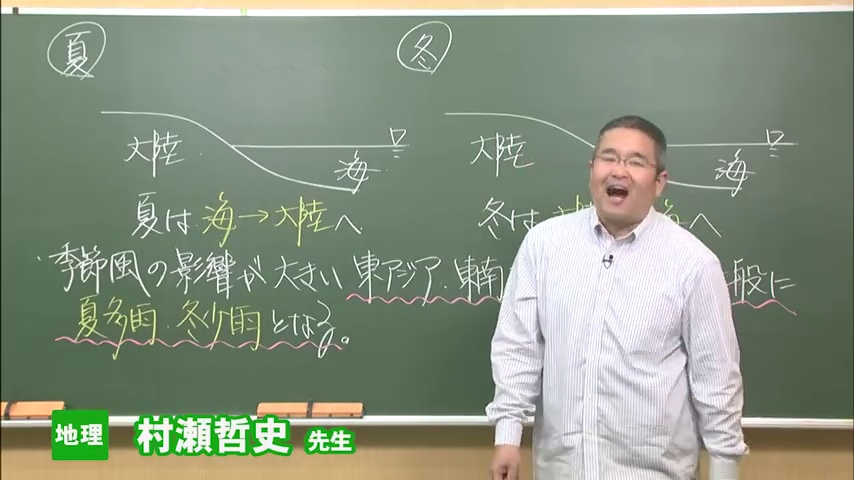 夏
冬
大陸
海
大陸
海
夏は 海→大陸へ
冬は 海へ
・季節風の影響が大きい東アジア・東南 般に
夏多雨・冬少雨となる。
地理 村瀬哲史 先生